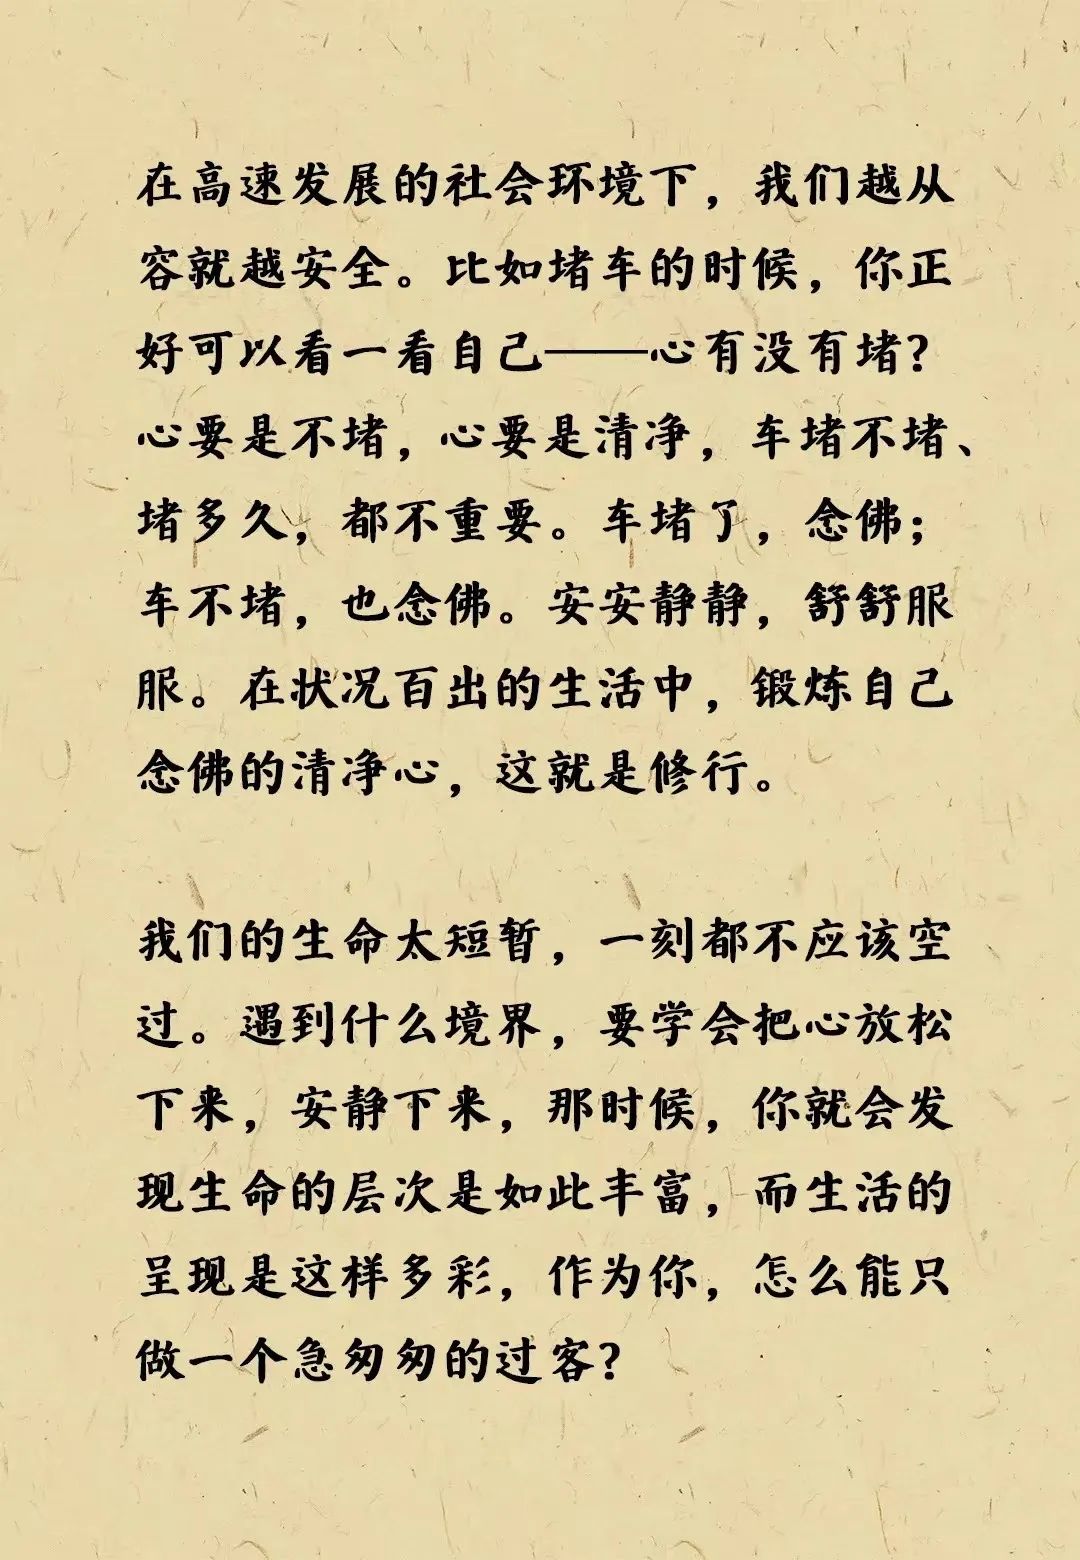 在高速发展的社会环境下，我们越从
容就越安全。比如堵车的时候，你正
好可以看一看自己——心有没有堵？
心要是不堵，心要是清净，车堵不堵、
堵多久，都不重要。车堵了，念佛；
车不堵，也念佛。安安静静，舒舒服
服。在状况百出的生活中，锻炼自己
念佛的清净心，这就是修行。
我们的生命太短暂，一刻都不应该空
过。遇到什么境界，要学会把心放松
下来，安静下来，那时候，你就会发
现生命的层次是如此丰富，而生活的
呈现是这样多彩，作为你，怎么能只
做一个急匆匆的过客？